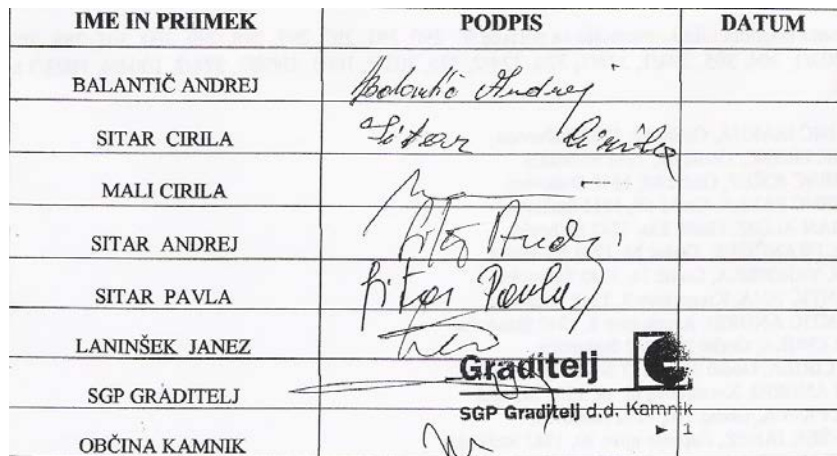 IME IN PRIIMEK PODPIS DATUM
BALANTIČ ANDREJ Balantič Andrej
SITAR CIRILA Sitar Cirila
MALI CIRILA
SITAR ANDREJ Sitar Andrej
SITAR PAVLA Sitar Pavla
LANINŠEK JANEZ
Graditelj
SGP GRADITELJ
SGP Graditelj d.d. Kamnik
1
OBČINA KAMNIK